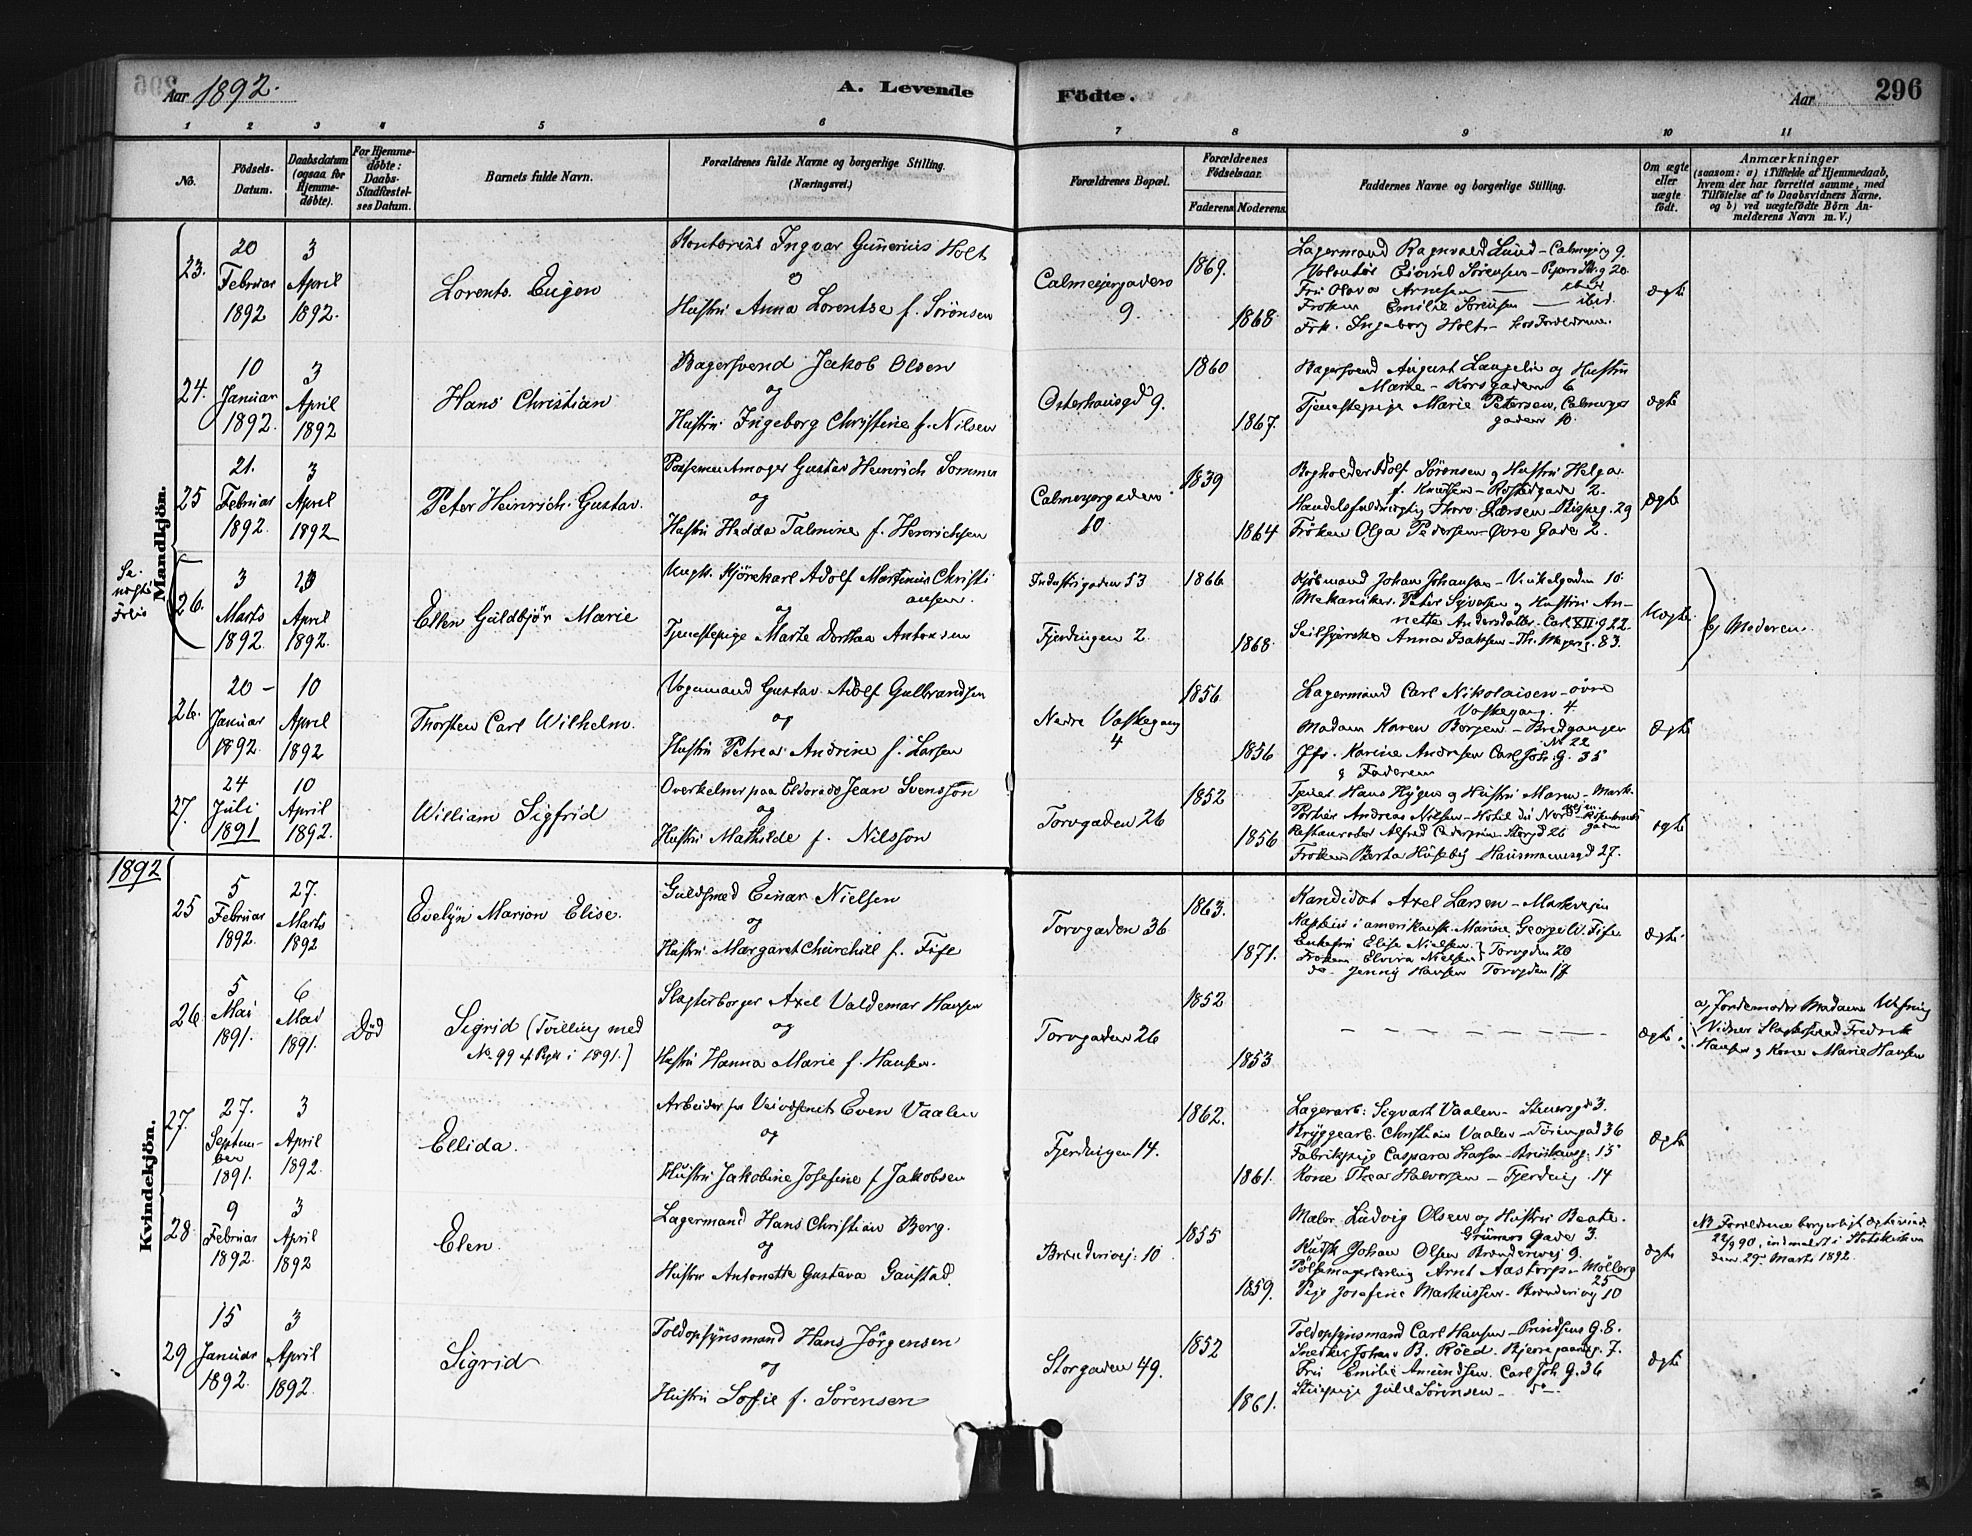 Aar 1892. A. Levende Födte. Aar 296
1 2 3 4 5 6 7 8 9 10 11
No. Födsels-Datum. Daabsdatum (ogsaa for Hjemmedøbte). For Hjemmedøbte: Daabs-Stadfæstelses Datum. Barnets fulde Navn. Forældrenes fulde Navne og borgerlige Stilling. (Næringsvei.) Forældrenes Bopæl. Forældrenes Födselsaar. Faderens Moderens. Faddernes Navne og borgerlige Stilling. Om ægte eller uægte födt. Anmærkninger (saasom: a) i Tilfælde af Hjemmedaab, hvem der har forrettet samme, med Tilföielse af to Daabsvidners Navne. og b) ved uægtefödte Börn Anmelderens Navn m.V.)
Mandkjön.
23. 20 Februar 1892 3 April 1892. Lorents Eugen
Kontorist Ingvar Gunerius Holt
og
Hustru Anna Lorentse f. Sörensen
Calmeyergaden 9. 1869. 1868
Lagermand Ragnvald Lund - Calmeyerg 9.
Fru Olava Arnesen — ibid
Frøken Emilie Sørensen — ibid.
Frk. Ingeborg Holt - hos Forældrene.
ægte
24. 10 Januar 1892. 3 April 1892 Hans Christian
Bagersvend Jakob Olsen
og
Hustru Ingeborg Christine f. Nilsen
Osterhausgd 9. 1860 1867.
Bagersvend August Langelie og Hustru
Marte - Korsgaden 6
Tjenestepige Marie Petersen, Calmeyergaden 10.
ægte
25 21. Februar 1892. 3 April 1892 Peter Heinrich Gustav.
Possementmager Gustav Heinrich Sommer
og
Hustru Hedda Talmine f. Henrichsen
Calmeyergaden 10. 1839 1864
Bogholder Adolf Sörensen og Hustru Helga
f. Knudsen - gade 2.
Thoro Larsen - Bispeg. 29
Fröken Olga Pedersen - Øvre Gade 2.
Ægte
26. 3 Marts 1892. 3 April 1892. Ellen Guldbjør Marie
Ungk. Kjørekarl Adolf Martinius Christiansen.
og
Tjenestepige Marte Dorthea Antonsen
Industrigaden 53 Fjerdingen 2. 1866 1868
Kjöbmand Johan Johansen - Vinkelgaden 10.
Mekaniker Peter Syversen og Hustru Annette Andersdatter - Carl XII g 22
Anna Isaksen - Th. Meyersg. 83.
Uægte. b) Moderen.
26. 20 - Januar 1892. 10 April 1892 Thorsten Carl Wilhelm.
Vognmand Gustav Adolf Gulbrandsen
og
Hustru Petrea Andrine f. Larsen
Nedre Vaskegang 4 1856. 1856
Lagermand Carl Nikolaisen - øvre
Vaskegang. 4
Madam Karen Borgen - Bredgangen
No 22
Jfr. Karine Andersen Carl Joh. G. 35
og Faderen
Ægte
27. 24 Juli 1891 10 April 1892. William Sigfrid
Overkelner paa Eldorado Jean Svensson
og
Hustru Mathilde f. Nilsson
Torvgaden 26 1852 1856
Hans Hygen og Hustru Maren - Markvejen
Portier Andreas Nilsen - Hotel du Nord -
Restauratør Alfred - Storgd 26
Frøken Berta Huseby - Hausmannsgd 27.
ægte
1892
Kvindekjön.
25 5 Februar 1892. 27. Marts 1892 Evelyn Marion Elise.
Guldsmed Einar Nielsen
og
Hustru Margaret Churchill f. Fife
Torvgaden 36 1863. 1871.
Kandidat Axel Larsen - Markvejen
Kaptein i amerikansk Marine George W. Fife
Enkefru Elise Nielsen } Torvgden 20
Frøken Elvira Nielsen
do - Jenny Hansen Torvgden 17
Ægte.
26. 5 Mai 1891. 6 Mai 1891. Död Sigrid (Tvilling med
No 99 af Pigk i 1891.)
Slagterborger Axel Valdemar Hansen
og
Hustru Hanna Marie f. Hansen.
Torvgaden 26 1852 1853
— — — — — — —
Ægte
a) Jordemoder Madam
Vidner Slagtersvend Fredrik
Hansen og Kone Marie Hansen
27. 27. September 1891. 3 April 1892. Ellida.
Arbeider Even Vaalen
og
Hustru Jakobine Josefine f Jakobsen
Fjerdingen 14. 1862. 1861.
Lagerarb: Sigvart Vaalen - Steensgd 3.
Bryggearb. Christian Vaalen - 36
Fabrikpige Caspara Larsen - 15
Kone Thea Halvorsen - Fjerding. 14
Ægte
28. 9 Februar 1892. 3 April 1892 Elen.
Lagermand Hans Christian Berg.
og
Hustru Antonette Gustava Gaustad.
Brenderivej. 10 1855 1859.
Maler Ludvig Olsen og Hustru Beate.
Grüners Gade 3.
Kudsk Johan Olsen Brenderivej 9.
Pölsemagerlærling Arnt Aastorp - Möllerg 25
Pige Josefine Markussen - Brenderivej 10
ægte
NB Forældrene borgerligt ægteviede
22/9 90, indmeldt i Statskirken
den 29. Marts 1892.
29 15 Januar 1892. 3 April 1892. Sigrid
Toldopsynsmand Hans Jörgensen
og
Hustru Sofie f. Sörensen
Storgaden 49. 1852 1861.
Toldopsynsmand Carl Hansen - Prindsens G. 8.
Snedker Johan B. Röed. 7.
Fru Emilie Amundsen. Carl Joh G. 36
Julie Sörensen - do -
ægte